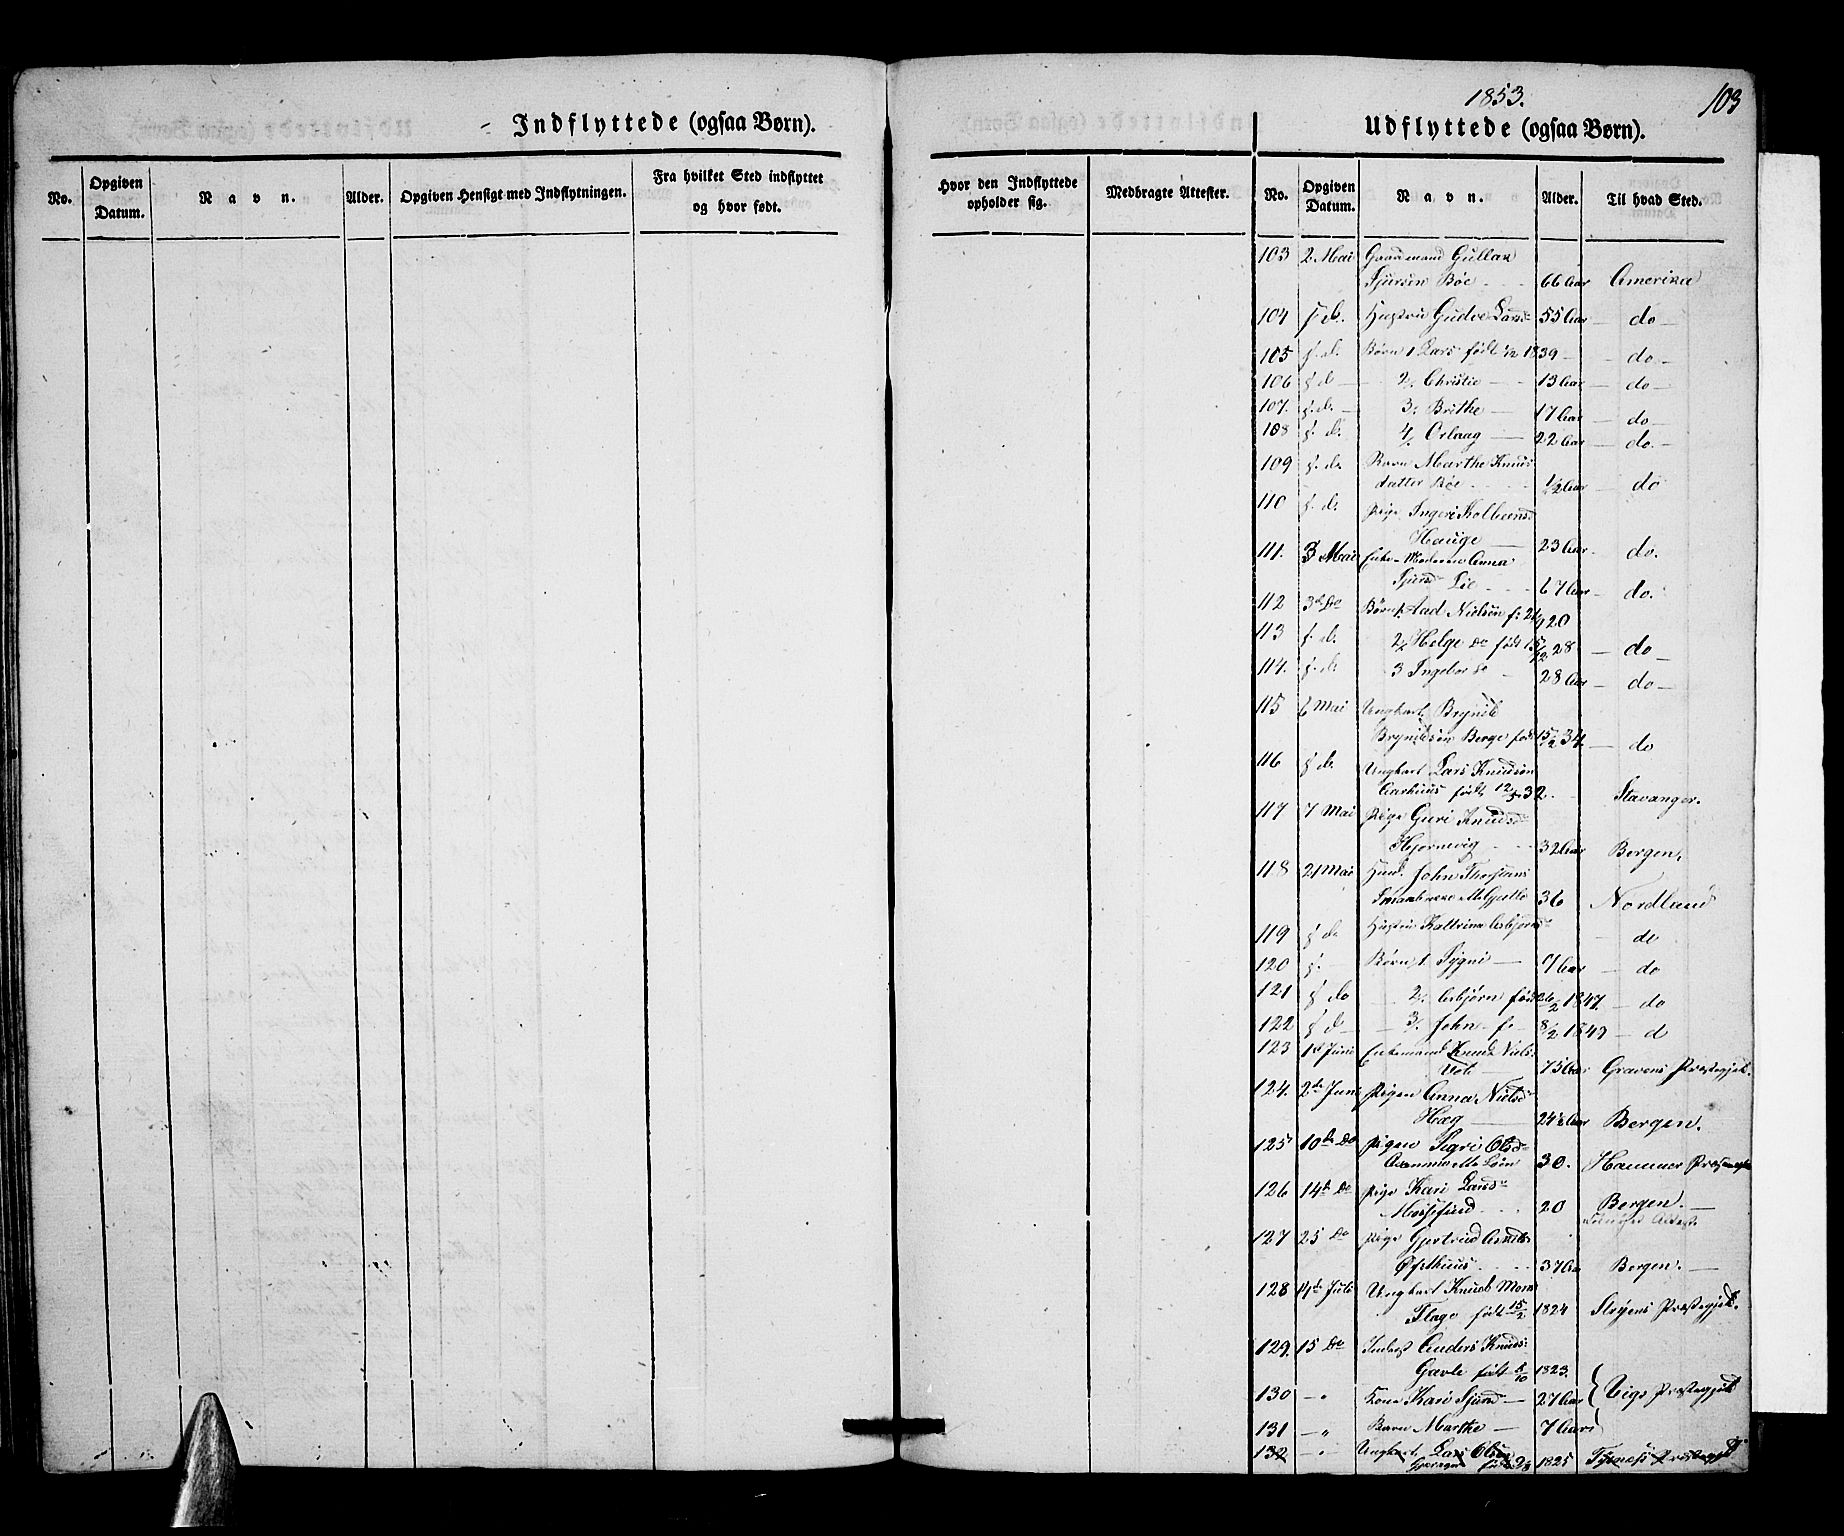 1853.
103
Indflyttede (ogsaa Børn).
Udflyttede (ogsaa Børn).
No. Opgiven Datum. Navn. Alder. Opgiven Hensigt med Indflytningen. Fra hvilket Sted indflyttet og hvor født.
Hvor den Indflyttede opholder sig. Medbragte Attester. No. Opgiven Datum. Navn. Alder. Til hvad Sted.
103 2 Mai Gaardmand Gullak
Sjursen Bøe 66 Aar Amerika
104 s. d. Hustru Gudve Larsd 55 Aar do
105 s. d. Børn 1 Lars født 1/2 1839 do
106 s. d 2, Christie 13 Aar do
107. s. d. 3, Brithe 17 Aar do
108 s. d. 4, Orlaug 22 Aar do.
109 s. d. Barn Marthe Knuds
datter Bøe 1/2 Aar do
110 s. d. Pige Ingeri Kolbeins
Hauge 23 Aar do.
111. 3 Mai Enke Anna
Sjursd Lie 67 Aar do.
112 3d Do Børn 1. Aad Nielsen f: 20
113 s. d. 2, Helge Do født 15/12 28 do
114. s. d. 3 Ingebor Do 28 Aar do
115 6 Mai Ungkarl Brynild
Brynildsen Berge født 15/2 34. do
116 s d. Ungkarl Lars Knudsen
Aarhuus født 12/5 32. Stavanger.
117 7 Mai Pige Guri Knudsd
Hjørnevig 32 Aar Bergen.
118 21 Mai Huusmd. John
36 Nordland
119 s d. Hustru Kattrina Asbjørnsd do
120 s. Børn 1. Sygni 9 Aar do
121 s do 2, Asbjørn født 26/2 1847. do
122 s d 3, John f. 8/2 1849 d
123 1st Juni Enkemand Knud Niels.
75 Aar Gravens Præstegjeld.
124. 2d Juni Pigen Anna Nielsd
Hæg 24 1/2 Aar Bergen.
125 10d Do Pigen Sigri Olsd
30. Hammer Præstegjeld
126 14d Do Pige Kari Larsd
20 Bergen.
127 25 Do Pige Gjertrud
Østhuus 37 Aar Bergen.
128 14d Juli Ungkarl Knud Mons
Flage født 15/2 1824 Præstegjeld.
129. 15 Do Inderst Anders Knuds:
født /10 1823.
130 — " Kone Kari Sjursd 27 Aar Vigs Præstegjeld
131 — " Barn Marthe 7 Aar
132 — " Ungkarl Lars Olsen
født 1825 Præstegjeld